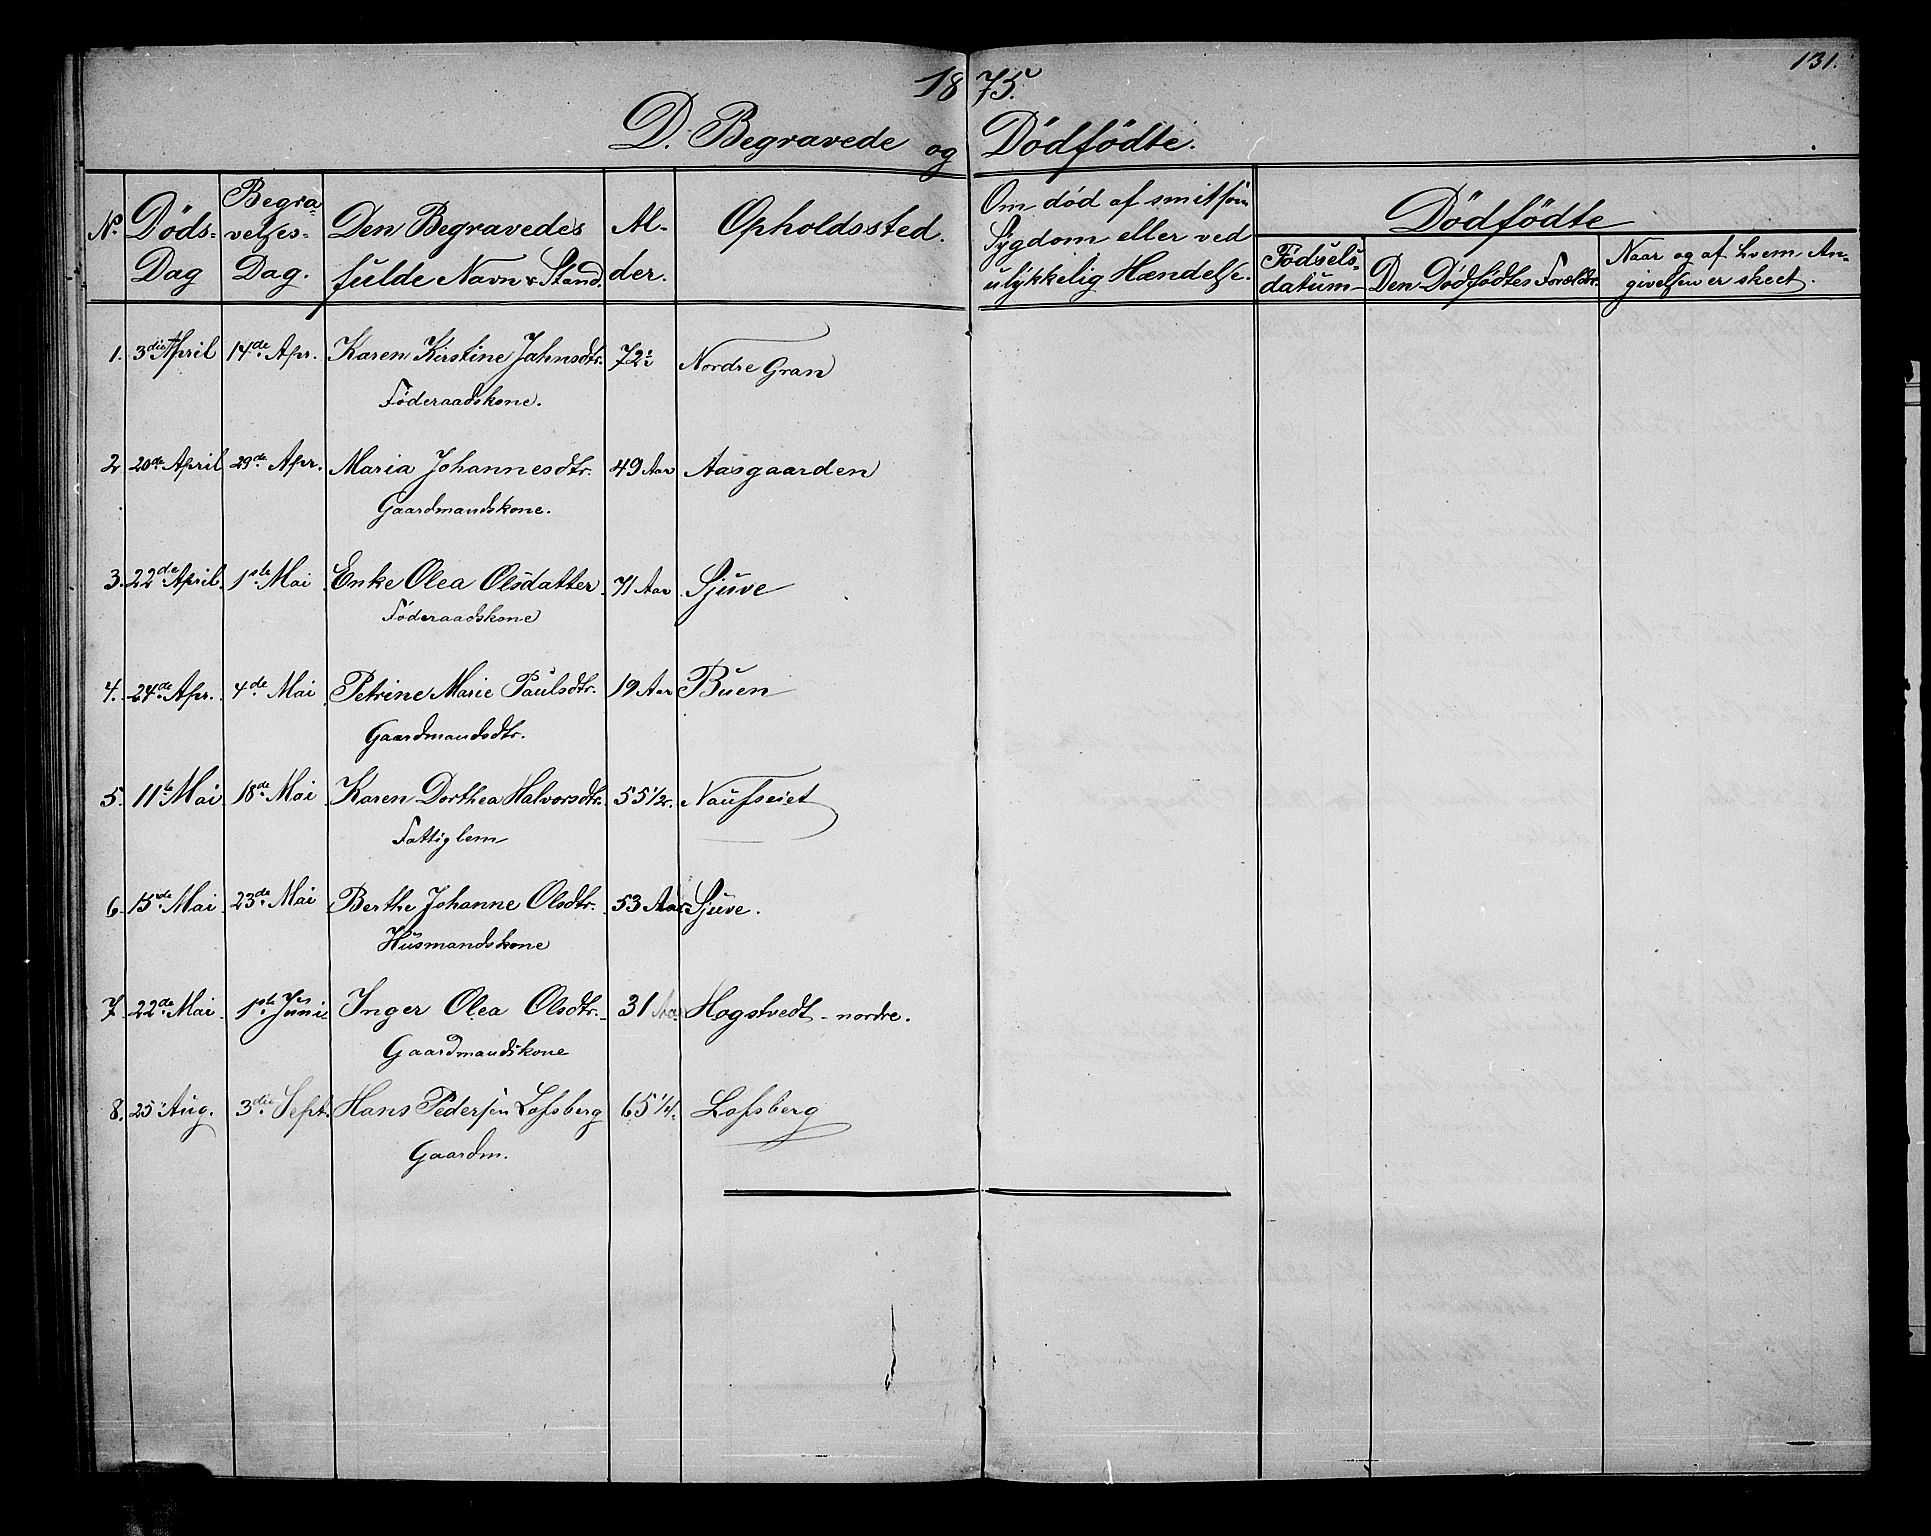 131.
1875.
D. Begravede og Dödfödte.
No.
Döds-Dag
Begravelses-Dag.
Den Begravedes fulde Navn & Stand.
Alder.
Opholdssted.
Om död af smitsom Sygdom eller ved ulykkelig Hændelse.
Dödfödte
Födselsdatum
Den Dödfödtes Forældre.
Naar og af hvem Angivelsen er skeet.
1. 3die April 14de Apr. Karen Kirstine Jahnsdtr. 72 Nordre Gran
Föderaadskone.
2 20de April 29de Apr. Maria Johannesdtr. 49 Aar Aasgaarden
Gaardmandskone.
3. 22de April 1ste Mai Enke Olea Olsdatter 71 Aar Sjuve
Föderaadskone
4. 24de Apr. 4de Mai Petrine Marie Paulsdtr. 19 Aar Buen
Gaardmandsdtr.
5. 11te Mai 18de Mai Karen Dorthea Halvorsdtr. 55 1/2. Naufseiet
Fattiglem
6. 15de Mai 23de Mai Berthe Johanne Olsdtr. 53 Aar Sjuve.
Husmandskone
7. 22de Mai 1ste Juni Inger Olea Olsdtr. 31 Aar Hogstvedt - nordre.
Gaardmandskone
8. 25 Aug. 3die Sept. Hans Pedersen Lofsberg 65 1/4. Lofsberg
Gaardm.